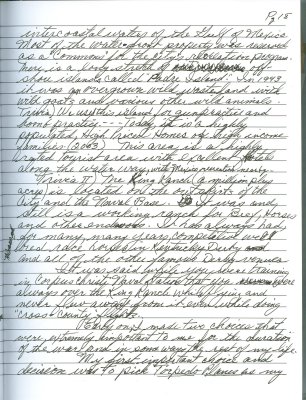 P3 18
intercoastal waters of the Gulf of Mexico
Most of the waterfront property was reserved
as a "Common" for the city's recreation program.
There is a long stretch of off-
shore islands called Padre Island. In 1943
it was an overgrown wild wasteland with
wild goats and various other wild animals.
Trivia, We used this island for gun practice and
bomb practice --- Today it is a highly
populated, high priced homes of high income
families (2003). This area is a highly
urged tourist area with excellent hotels
along the water way with nearby
Trivia #2. The King Ranch (a million plus
acres) is located on the outskirts of the
City and the Naval Base. It was and
still is a working ranch for beef, horses
and other endeavors. It has always had,
for many, many years competitive well
bred race horses in Kentucky Derby
and all of the other famous Derby venues
It was said while you were training
in Corpus Christi Naval Station that you
always over the King Ranch while flying and
never flew away from it even while doing
"cross-country" flights.
Early on I made two choices that
were extremely important to me for the duration
of the war and in some ways the rest of my life.
My first important choice and
decision was to pick Torpedo Planes as my